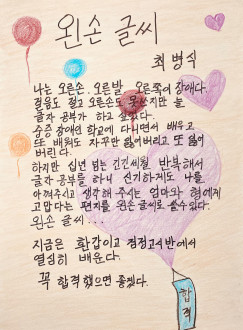 왼손 글씨
최병식
나는 오른손 오른발 오른쪽이 장애다.
걸음도 절고 오른손도 못쓰지만 늘
글자 공부가 하고 싶었다.
중증 장애인 학교에 다니면서 배우고
또 배워도 자꾸만 잃어버리고 또 잃어
버린다.
하지만 십년 넘는 긴긴세월 반복해서
글자 공부를 하니 신기하게도 나를
아껴주고 생각해 주시는 엄마와 형에게
고맙다는 편지를 왼손 글씨로 쓸수있다.
왼손 글씨...
지금은 환갑이고 검정고시반에서
열심히 배운다.
꼭 합격했으면 좋겠다.
합격